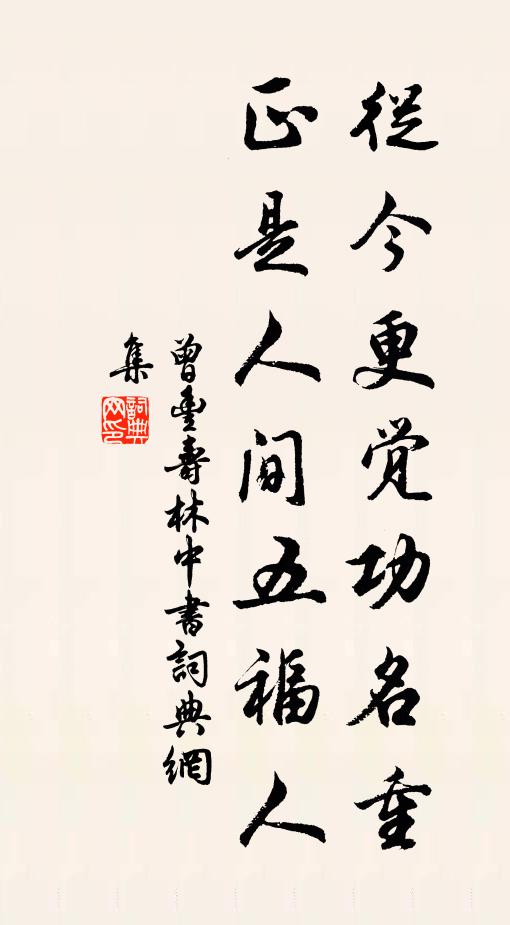 從今更覚功名重
正是人间五福人
曾豊壽林中書詞典網
集
詞典
网印